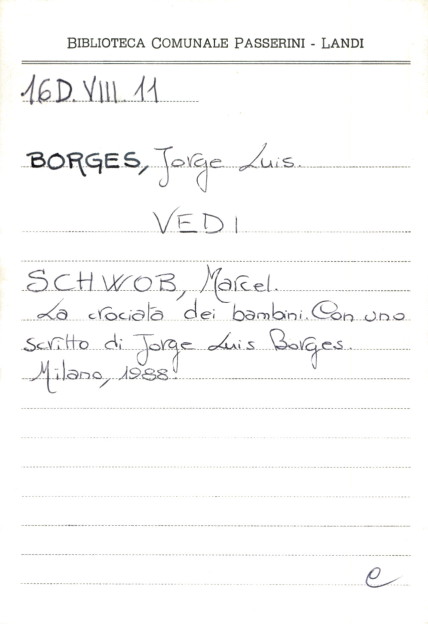 BIBLIOTECA COMUNALE PASSERINI - LANDI
16D.VIII.11
BORGES, Jorge Luis.
VEDI
SCHWOB, Marcel.
La crociata dei bambini. Con uno
scritto di Jorge Luis Borges.
Milano, 1988.
e